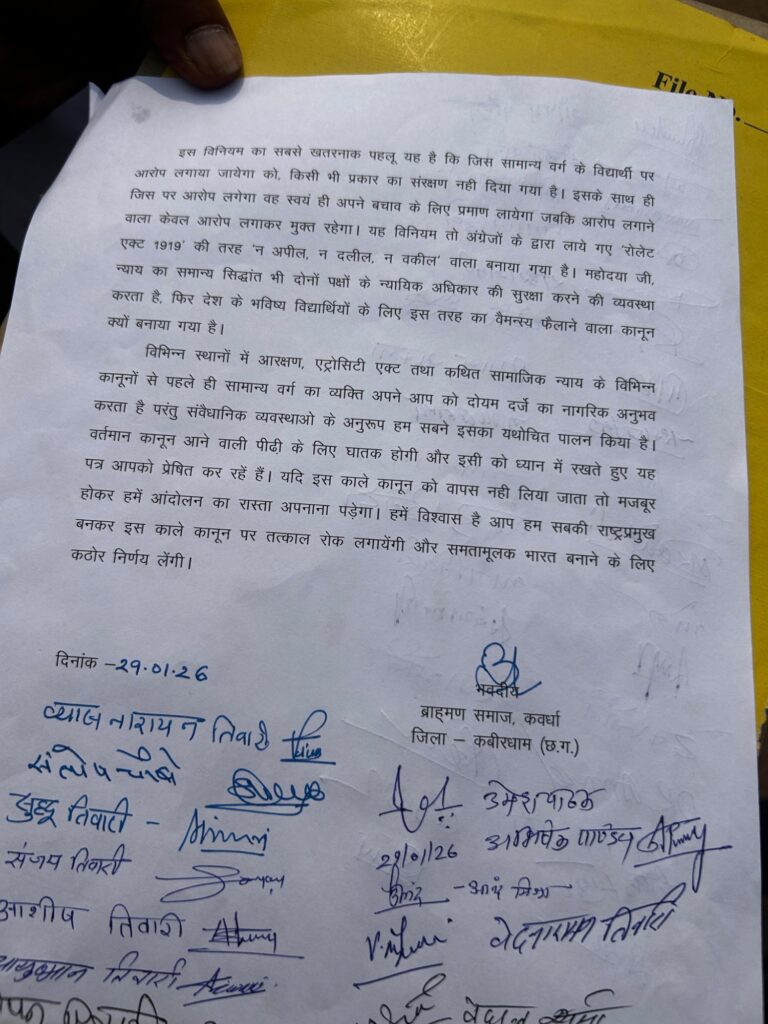 File No.
इस विनियम का सबसे खतरनाक पहलू यह है कि जिस सामान्य वर्ग के विद्यार्थी पर
आरोप लगाया जायेगा को, किसी भी प्रकार का संरक्षण नही दिया गया है। इसके साथ ही
जिस पर आरोप लगेगा वह स्वयं ही अपने बचाव के लिए प्रमाण लायेगा जबकि आरोप लगाने
वाला केवल आरोप लगाकर मुक्त रहेगा। यह विनियम तो अंग्रेजों के द्वारा लाये गए 'रोलेट
एक्ट 1919' की तरह 'न अपील, न दलील, न वकील' वाला बनाया गया है। महोदया जी,
न्याय का समान्य सिद्धांत भी दोनों पक्षों के न्यायिक अधिकार की सुरक्षा करने की व्यवस्था
करता है, फिर देश के भविष्य विद्यार्थियों के लिए इस तरह का वैमन्स्य फैलाने वाला कानून
क्यों बनाया गया है।
विभिन्न स्थानों में आरक्षण, एट्रोसिटी एक्ट तथा कथित सामाजिक न्याय के विभिन्न
कानूनों से पहले ही सामान्य वर्ग का व्यक्ति अपने आप को दोयम दर्जे का नागरिक अनुभव
करता है परंतु संवैधानिक व्यवस्थाओ के अनुरूप हम सबने इसका यथोचित पालन किया है।
वर्तमान कानून आने वाली पीढ़ी के लिए घातक होगी और इसी को ध्यान में रखते हुए यह
पत्र आपको प्रेषित कर रहें हैं। यदि इस काले कानून को वापस नही लिया जाता तो मजबूर
होकर हमें आंदोलन का रास्ता अपनाना पड़ेगा। हमें विश्वास है आप हम सबकी राष्ट्रप्रमुख
बनकर इस काले कानून पर तत्काल रोक लगायेंगी और समतामूलक भारत बनाने के लिए
कठोर निर्णय लेंगी।
दिनांक -29.01.26
भवदीय
ब्राहमण समाज, कवर्धा
जिला – कबीरधाम (छ.ग.)
व्यास नारायण तिवारी
संतोष चौबे
तिवारी -
संजय तिवारी
आशीष तिवारी
आयुष्मान तिवारी
उमेश पाठक
29/01/26 अभिषेक पाण्डेय
- आनंद मिश्रा
वेदनारायण तिवारी